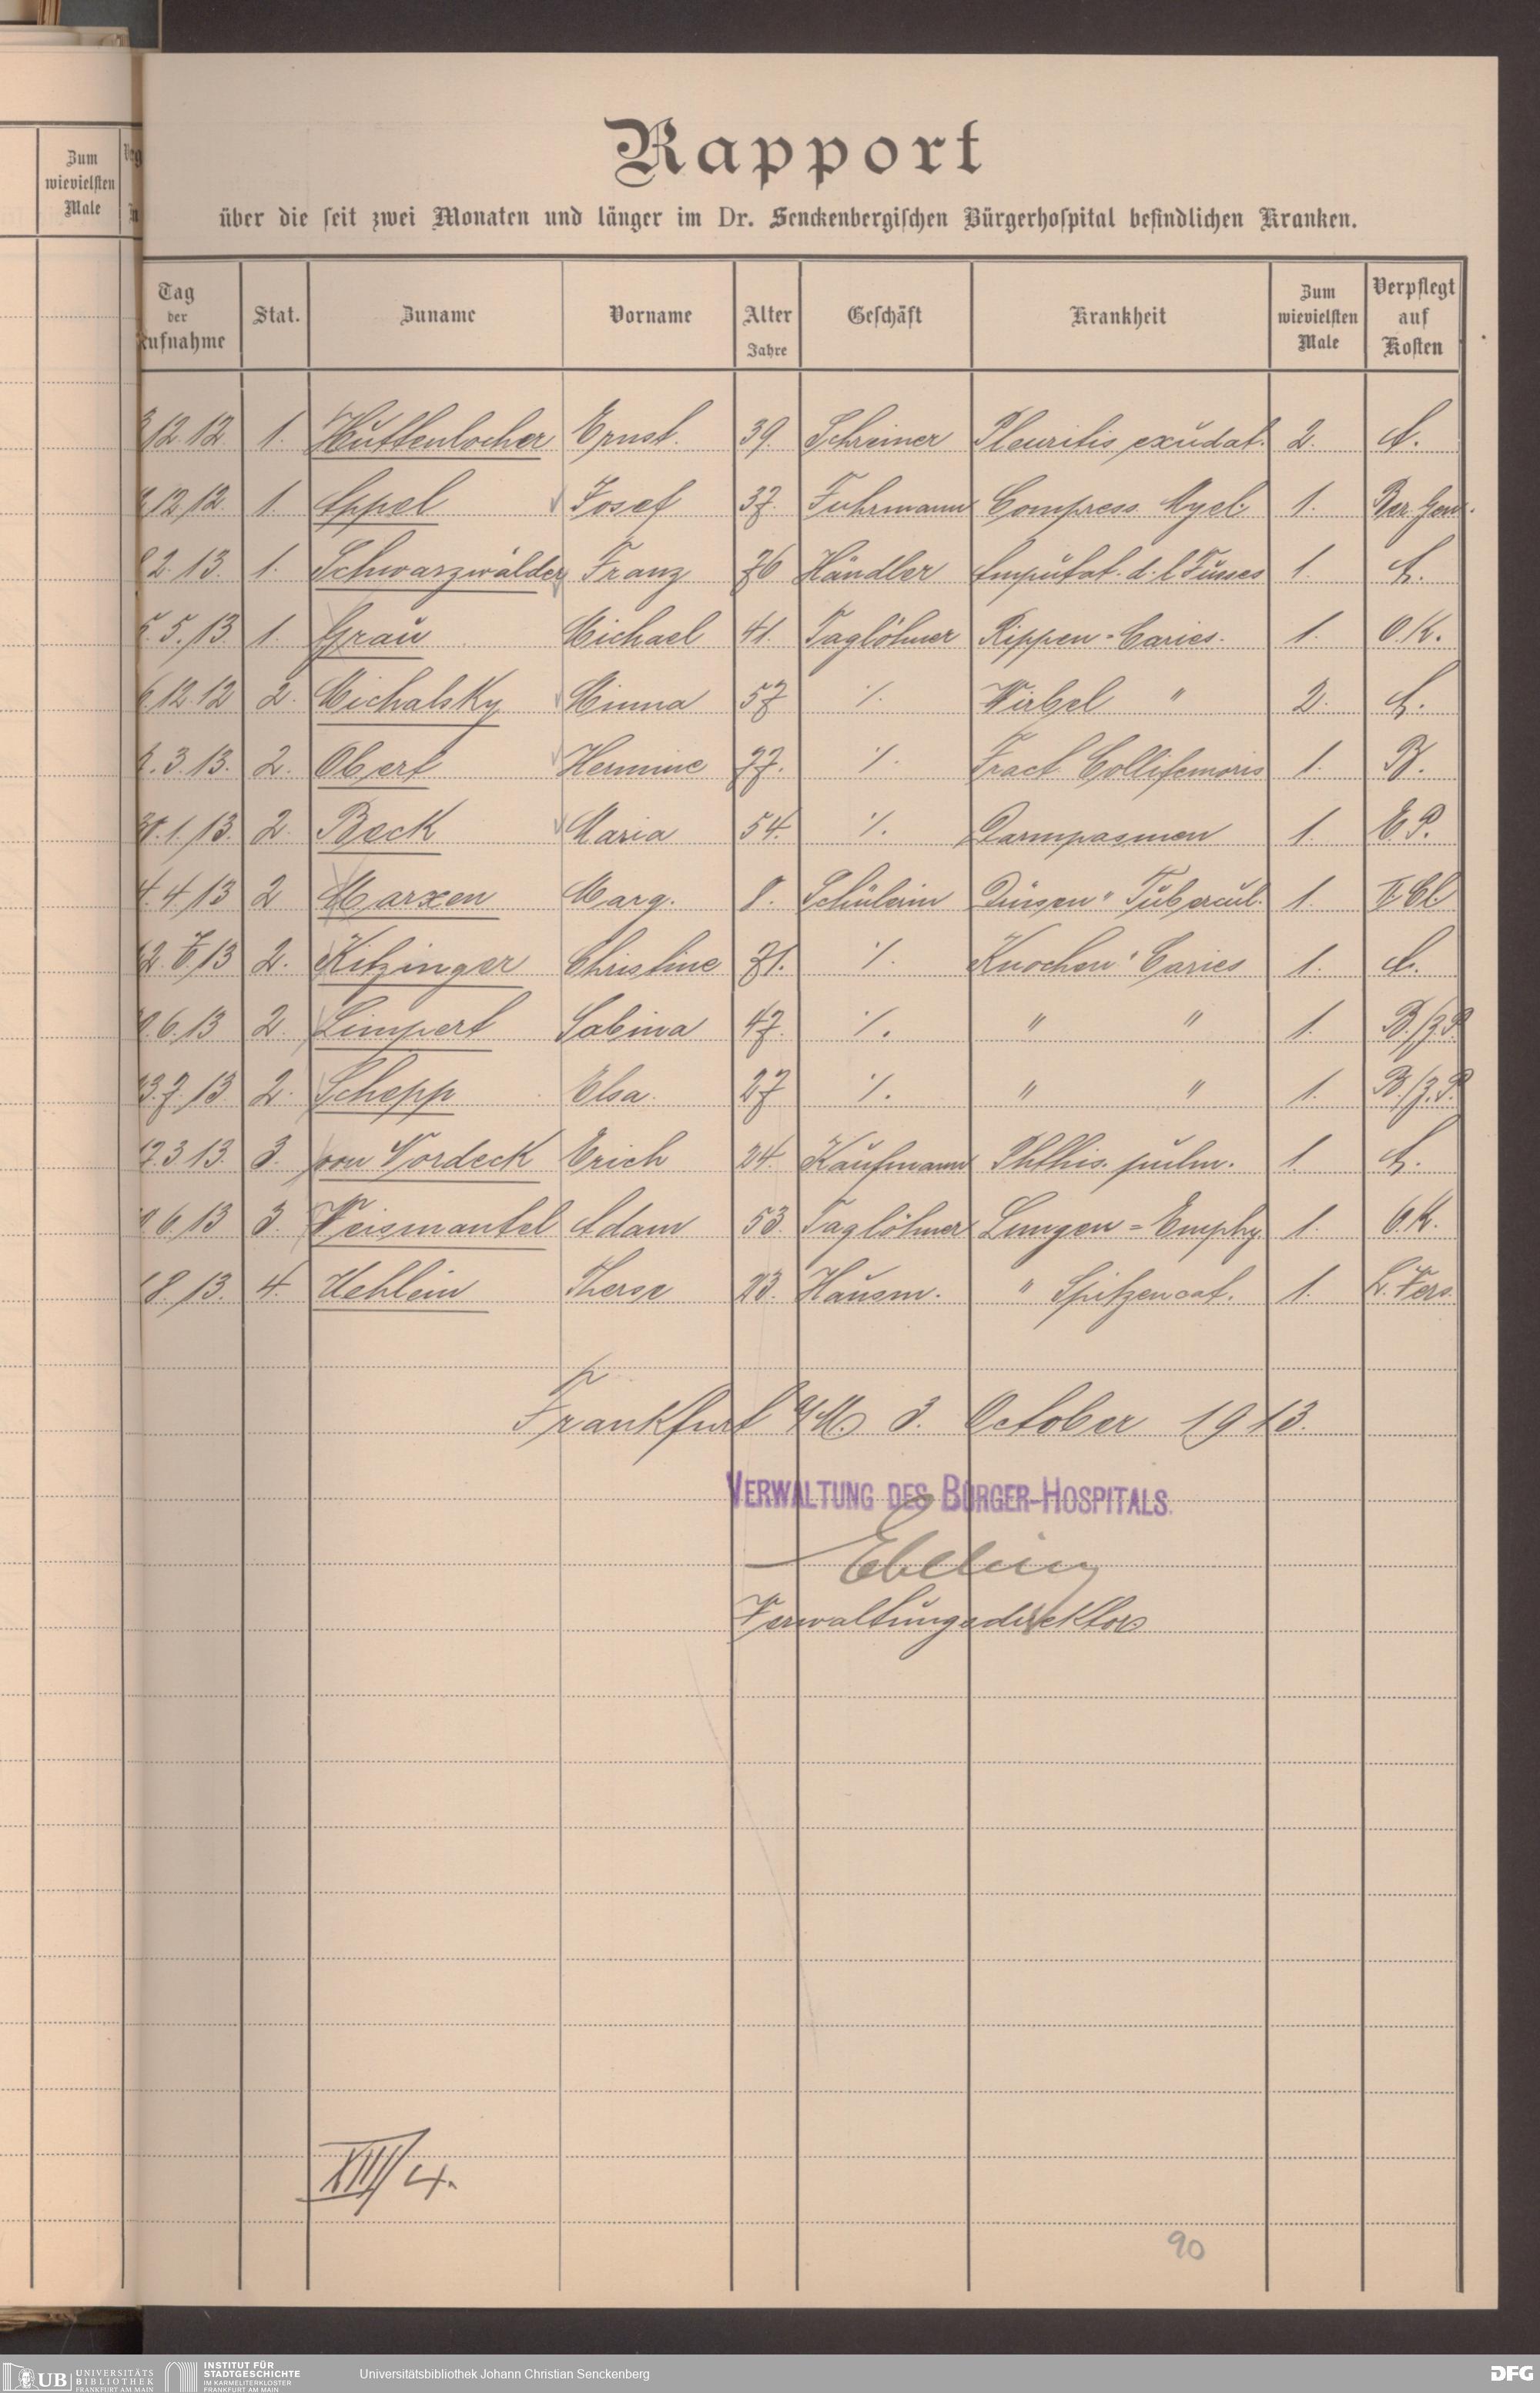 Zum
wievielsten
Male
Rapport
über die seit zwei Monaten und länger im Dr. Senckenbergischen Bürgerhospital befindlichen Kranken.
Tag der Aufnahme Stat. Zuname Vorname Alter Jahre Geschäft Krankheit Zum wievielsten Male Verpflegt auf Kosten
12.12. 1. Huttenlocher Ernst. 39. Schreiner Pleuritis exudat. 2. A.
12.12. 1. Appel Josef 37. Fuhrmann Compress. Myel. 1.
2.13. 1. Schwarzwälder Franz 76 Händler Amputat. d. l. Fusses 1. A.
5.13. 1. Grau Michael 41. Taglöhner Rippen-Caries. 1. O.K.
12.12 2. Michalsky Minna 57 ·/. Wirbel " 2. A.
3.13. 2. Obert Hermine 77. ·/. Fract. Collifemoris 1. B.
1.13. 2. Beck Maria 54. ·/. 1. E.P.
4.4.13 2 Marxen Marg. 8. Schülerin Drüsen " Tubercul. 1. II Cl.
13 2. Kitzinger Christine 71. ·/. Knochen " Caries 1. A.
6.13 2. Limpert Sabina 47. ·/. " " 1. B./z.P.
7.13 2. Schepp Elsa. 27 ·/. " " 1. B./z.P.
3.13. 3. von Nordeck Erich 24. Kaufmann Phthis. pulm. 1. A.
6.13 3. Weismantel Adam 53. Taglöhner Lungen-Emphy. 1. O.K.
8.13. 4. Uehlein Therse 23. Hausm. " Spitzencat. 1. L. Vers.
Frankfurt a/M. 3. October 1913.
VERWALTUNG DES BÜRGER-HOSPITALS.
Ebeling
Verwaltungsdirektor
XIII/4.
90
UB UNIVERSITÄTS BIBLIOTHEK FRANKFURT AM MAIN
INSTITUT FÜR STADTGESCHICHTE IM KARMELITERKLOSTER FRANKFURT AM MAIN
Universitätsbibliothek Johann Christian Senckenberg
DFG